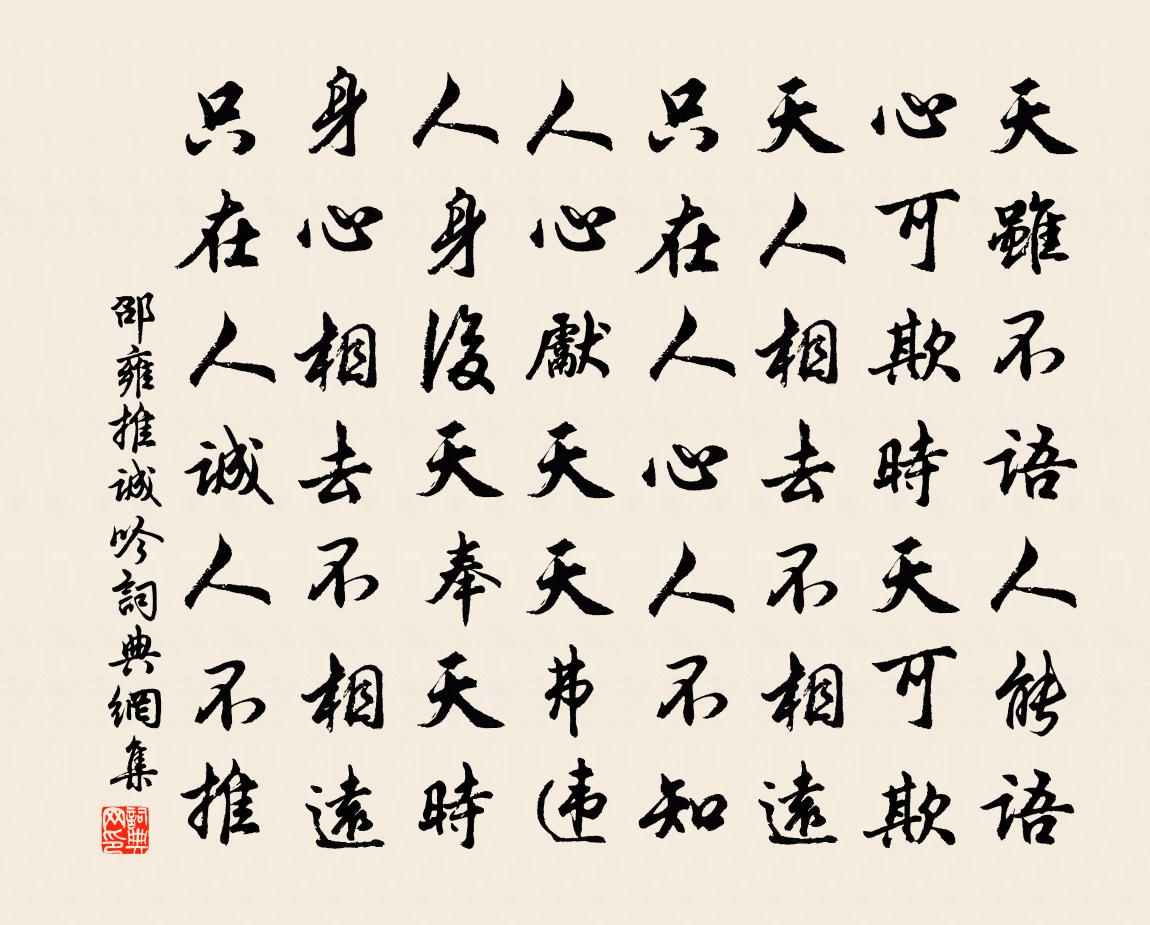 天雖不語人能語
心可欺時天可欺
天人相去不相遠
只在人心人不知
人心獻天天弗違
人身後天奉天時
身心相去不相遠
只在人誠人不推
邵雍推誠吟詞典網集
詞典
网印